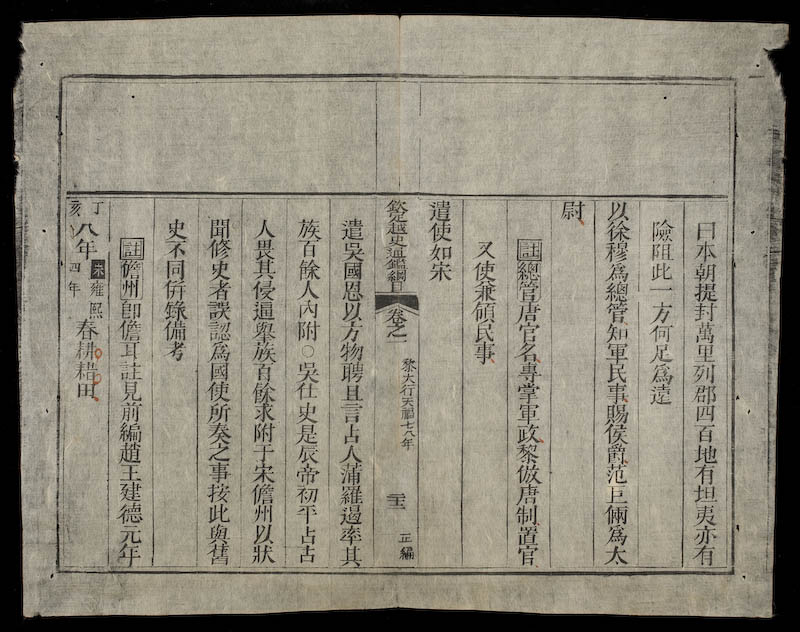 曰本朝提封萬里列郡四百地有坦夷亦有
險阻此一方何足爲遠
以徐穆爲總管知軍民事賜侯爵范巨倆爲太
尉
註總管唐官名專掌軍政黎倣唐制置官
又使兼領民事
遣使如宋
欽定越史通鑑綱目 卷之一 黎大行天福七八年 二十三 正編
遣吳國恩以方物聘且言占人蒲羅遏率其
族百餘人內附○吳仕史是辰帝初平占古
人畏其侵逼舉族百餘求附于宋儋州以狀
聞修史者誤認爲國使所奏之事按此與舊
史不同併錄備考
註儋州卽儋耳註見前編趙王建德元年
丁亥八年宋雍熙四年春耕耤田